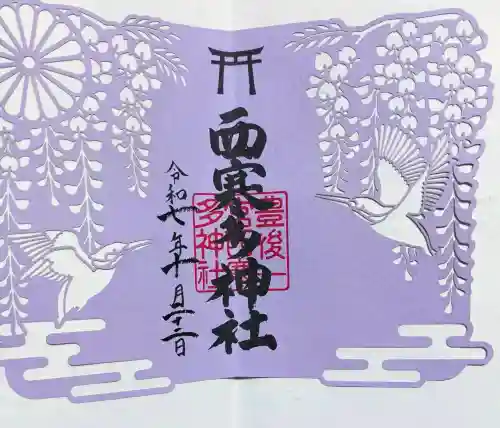 西寒多神社
豊後一
宮西寒
多神社
令和七年十月二十二日